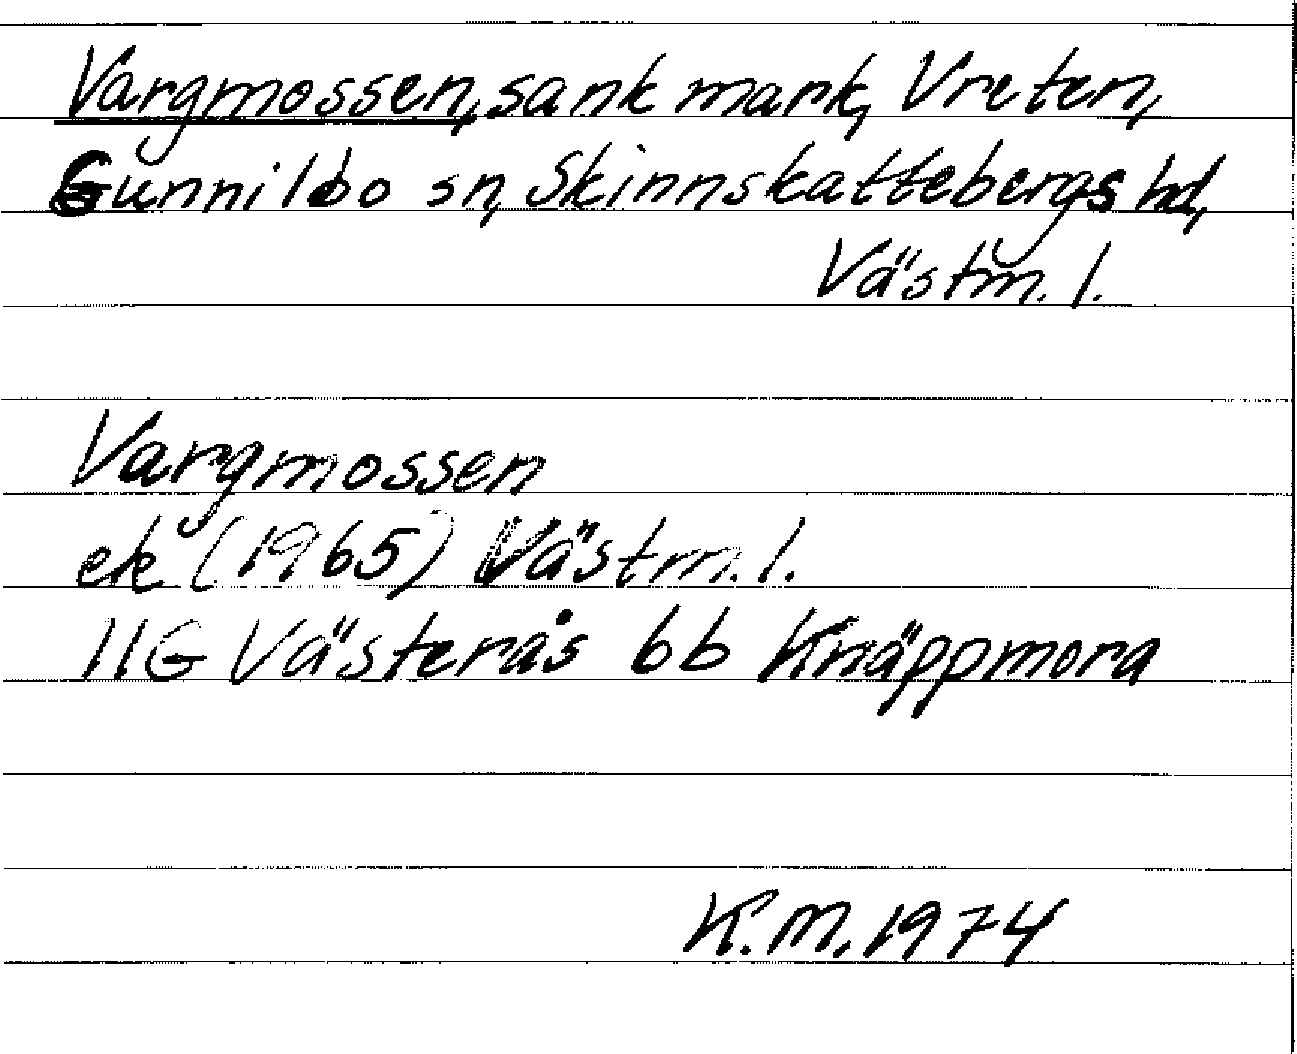 Vargmossen, sank mark, Vreten,
Gunnilbo sn, Skinnskattebergs hd,
Västm. l.
Vargmossen
ek (1965) Västm. l.
11G Västerås 6b Knäppmora
K.M. 1974